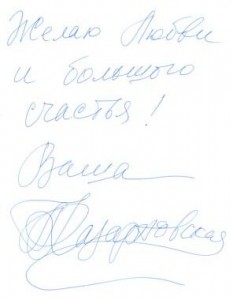 Желаю Любви
и большого
счастья!
Ваша
Казарновская